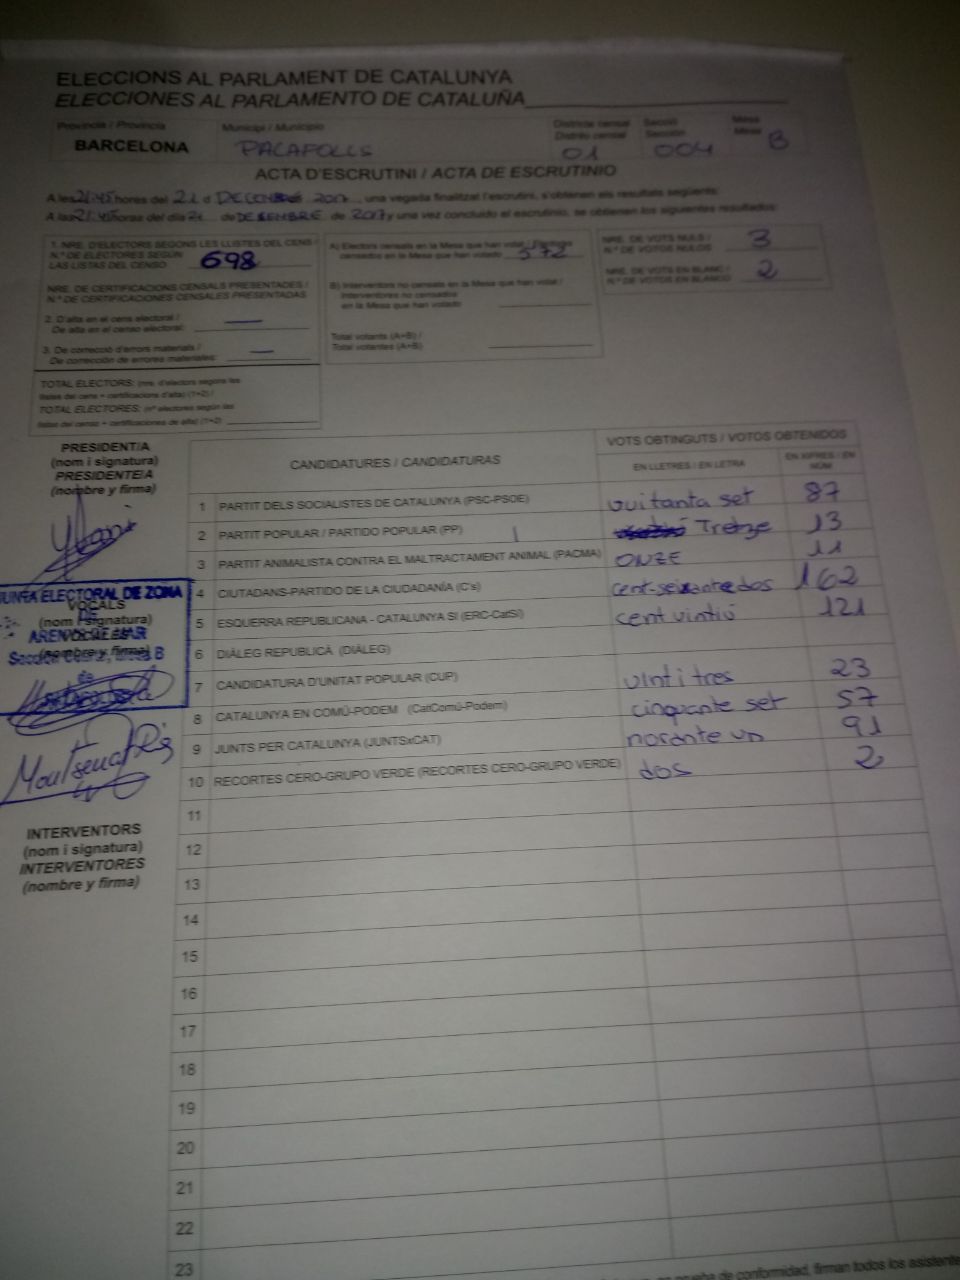 ELECCIONS AL PARLAMENT DE CATALUNYA
ELECCIONES AL PARLAMENTO DE CATALUÑA
Província / Provincia
BARCELONA
Municipi / Municipio
PACAFOLLS
Districte censal
Distrito censal
01
Secció
Sección
004
Mesa
Mesa
B
ACTA D'ESCRUTINI / ACTA DE ESCRUTINIO
A les 21:45 hores del 21 d DECEMBRE 2017, una vegada finalitzat l'escrutini, s'obtenen els resultats següents:
A las 21:45 horas del día 21 de DESEMBRE de 2017 y una vez concluido el escrutinio, se obtienen los siguientes resultados:
1. NRE. D'ELECTORS SEGONS LES LLISTES DEL CENS /
N.º DE ELECTORES SEGÚN
LAS LISTAS DEL CENSO
698
NRE. DE CERTIFICACIONS CENSALS PRESENTADES /
N.º DE CERTIFICACIONES CENSALES PRESENTADAS
2. D'alta en el cens electoral /
De alta en el censo electoral:
—
3. De correcció d'errors materials /
De corrección de errores materiales:
—
TOTAL ELECTORS: (nre. d'electors segons les
llistes del cens + certificacions d'alta) (1+2) /
TOTAL ELECTORES: (nº electores según las
listas del censo + certificaciones de alta) (1+2)
A) Electors censats en la Mesa que han votat / Electores
censados en la Mesa que han votado
572
B) Interventors no censats en la Mesa que han votat /
Interventores no censados
en la Mesa que han votado
Total votants (A+B) /
Total votantes (A+B)
NRE. DE VOTS NULS /
N.º DE VOTOS NULOS
3
NRE. DE VOTS EN BLANC /
N.º DE VOTOS EN BLANCO
2
PRESIDENT/A
(nom i signatura)
PRESIDENTE/A
(nombre y firma)
JUNTA ELECTORAL DE ZONA
DE
ARENYS DE MAR
VOCALS
(nom i signatura)
VOCALES
(nombre y firma)
Montserrat
INTERVENTORS
(nom i signatura)
INTERVENTORES
(nombre y firma)
CANDIDATURES / CANDIDATURAS
VOTS OBTINGUTS / VOTOS OBTENIDOS
EN LLETRES / EN LETRA
EN XIFRES / EN NÚM.
1 PARTIT DELS SOCIALISTES DE CATALUNYA (PSC-PSOE) vuitanta set 87
2 PARTIT POPULAR / PARTIDO POPULAR (PP) Tretze 13
3 PARTIT ANIMALISTA CONTRA EL MALTRACTAMENT ANIMAL (PACMA) ONZE 11
4 CIUTADANS-PARTIDO DE LA CIUDADANÍA (C's) cent-seixantedos 162
5 ESQUERRA REPUBLICANA - CATALUNYA SÍ (ERC-CatSí) cent vintiú 121
6 DIÀLEG REPUBLICÀ (DIÀLEG)
7 CANDIDATURA D'UNITAT POPULAR (CUP) vinti tres 23
8 CATALUNYA EN COMÚ-PODEM (CatComú-Podem) cinquante set 57
9 JUNTS PER CATALUNYA (JUNTSxCAT) norante un 91
10 RECORTES CERO-GRUPO VERDE (RECORTES CERO-GRUPO VERDE) dos 2
11
12
13
14
15
16
17
18
19
20
21
22
23
de conformidad, firman todos los asistentes